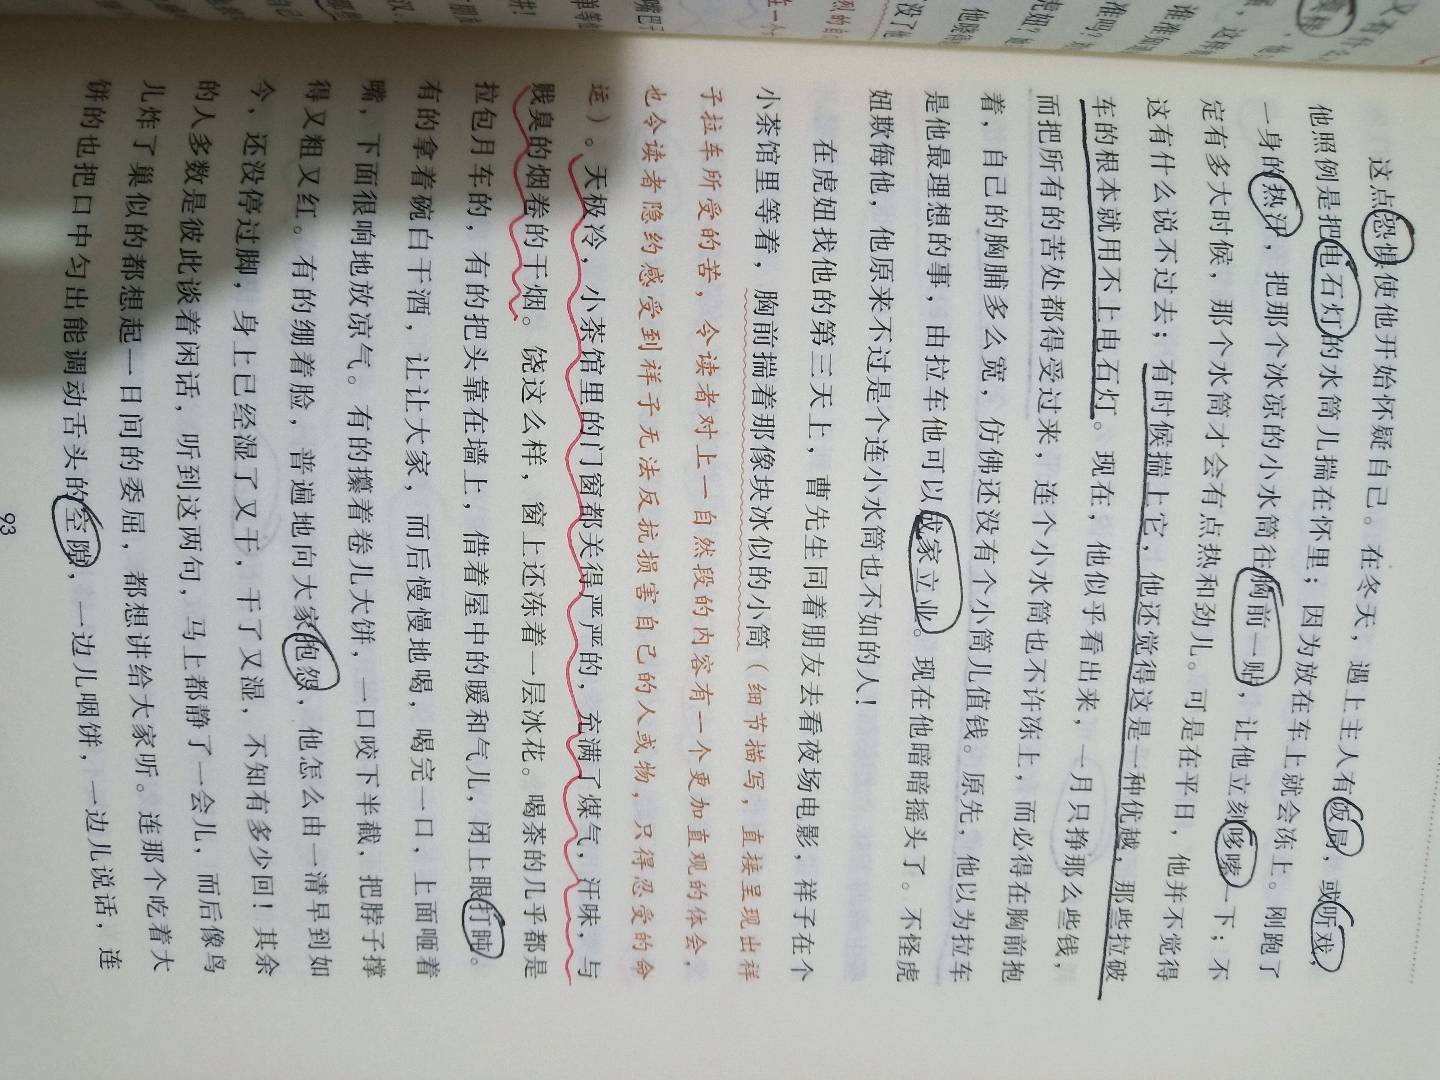 这点恐惧使他开始怀疑自己。在冬天，遇上主人有饭局，或听戏，
他照例是把电石灯的水筒儿揣在怀里；因为放在车上就会冻上。刚跑了
一身的热汗，把那个冰凉的小水筒往胸前一贴，让他立刻哆嗦一下；不
定有多大时候，那个水筒才会有点热和劲儿。可是在平日，他并不觉得
这有什么说不过去；有时候揣上它，他还觉得这是一种优越，那些拉破
车的根本就用不上电石灯。现在，他似乎看出来，一月只挣那么些钱，
而把所有的苦处都得受过来，连个小水筒也不许冻上，而必得在胸前抱
着，自己的胸脯多么宽，仿佛还没有个小筒儿值钱。原先，他以为拉车
是他最理想的事，由拉车他可以成家立业。现在他暗暗摇头了。不怪虎
妞欺侮他，他原来不过是个连小水筒也不如的人！
在虎妞找他的第三天上，曹先生同着朋友去看夜场电影，祥子在个
小茶馆里等着，胸前揣着那像块冰似的小筒（细节描写，直接呈现出祥
子拉车所受的苦，令读者对上一自然段的内容有一个更加直观的体会，
也令读者隐约感受到祥子无法反抗损害自己的人或物，只得忍受的命
运）。天极冷，小茶馆里的门窗都关得严严的，充满了煤气，汗味，与
贱臭的烟卷的干烟。饶这么样，窗上还冻着一层冰花。喝茶的几乎都是
拉包月车的，有的把头靠在墙上，借着屋中的暖和气儿，闭上眼打盹。
有的拿着碗白干酒，让让大家，而后慢慢地喝，喝完一口，上面咂着
嘴，下面很响地放凉气。有的攥着卷儿大饼，一口咬下半截，把脖子撑
得又粗又红。有的绷着脸，普遍地向大家抱怨，他怎么由一清早到如
今，还没停过脚，身上已经湿了又干，干了又湿，不知有多少回！其余
的人多数是彼此谈着闲话，听到这两句，马上都静了一会儿，而后像鸟
儿炸了巢似的都想起一日间的委屈，都想讲给大家听。连那个吃着大
饼的也把口中匀出能调动舌头的空隙，一边儿咽饼，一边儿说话，连
93